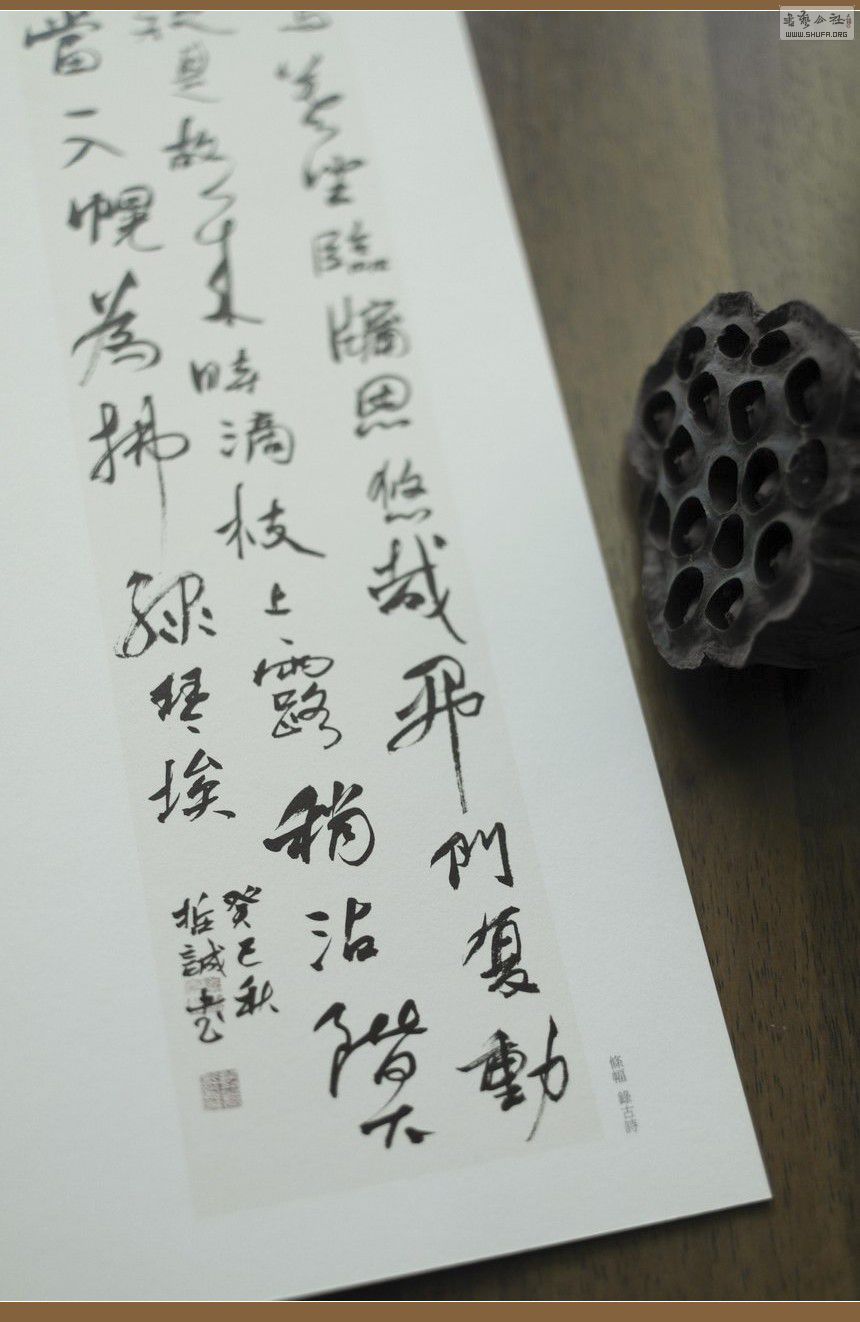 暮坐臨牖思悠哉開門复動
疑是故人來時滴枝上露稍沾階下
當一入幌為拂綠琴埃
癸巳秋
哲誠書
條幅 錄古詩
書藝公社
WWW.SHUFA.ORG